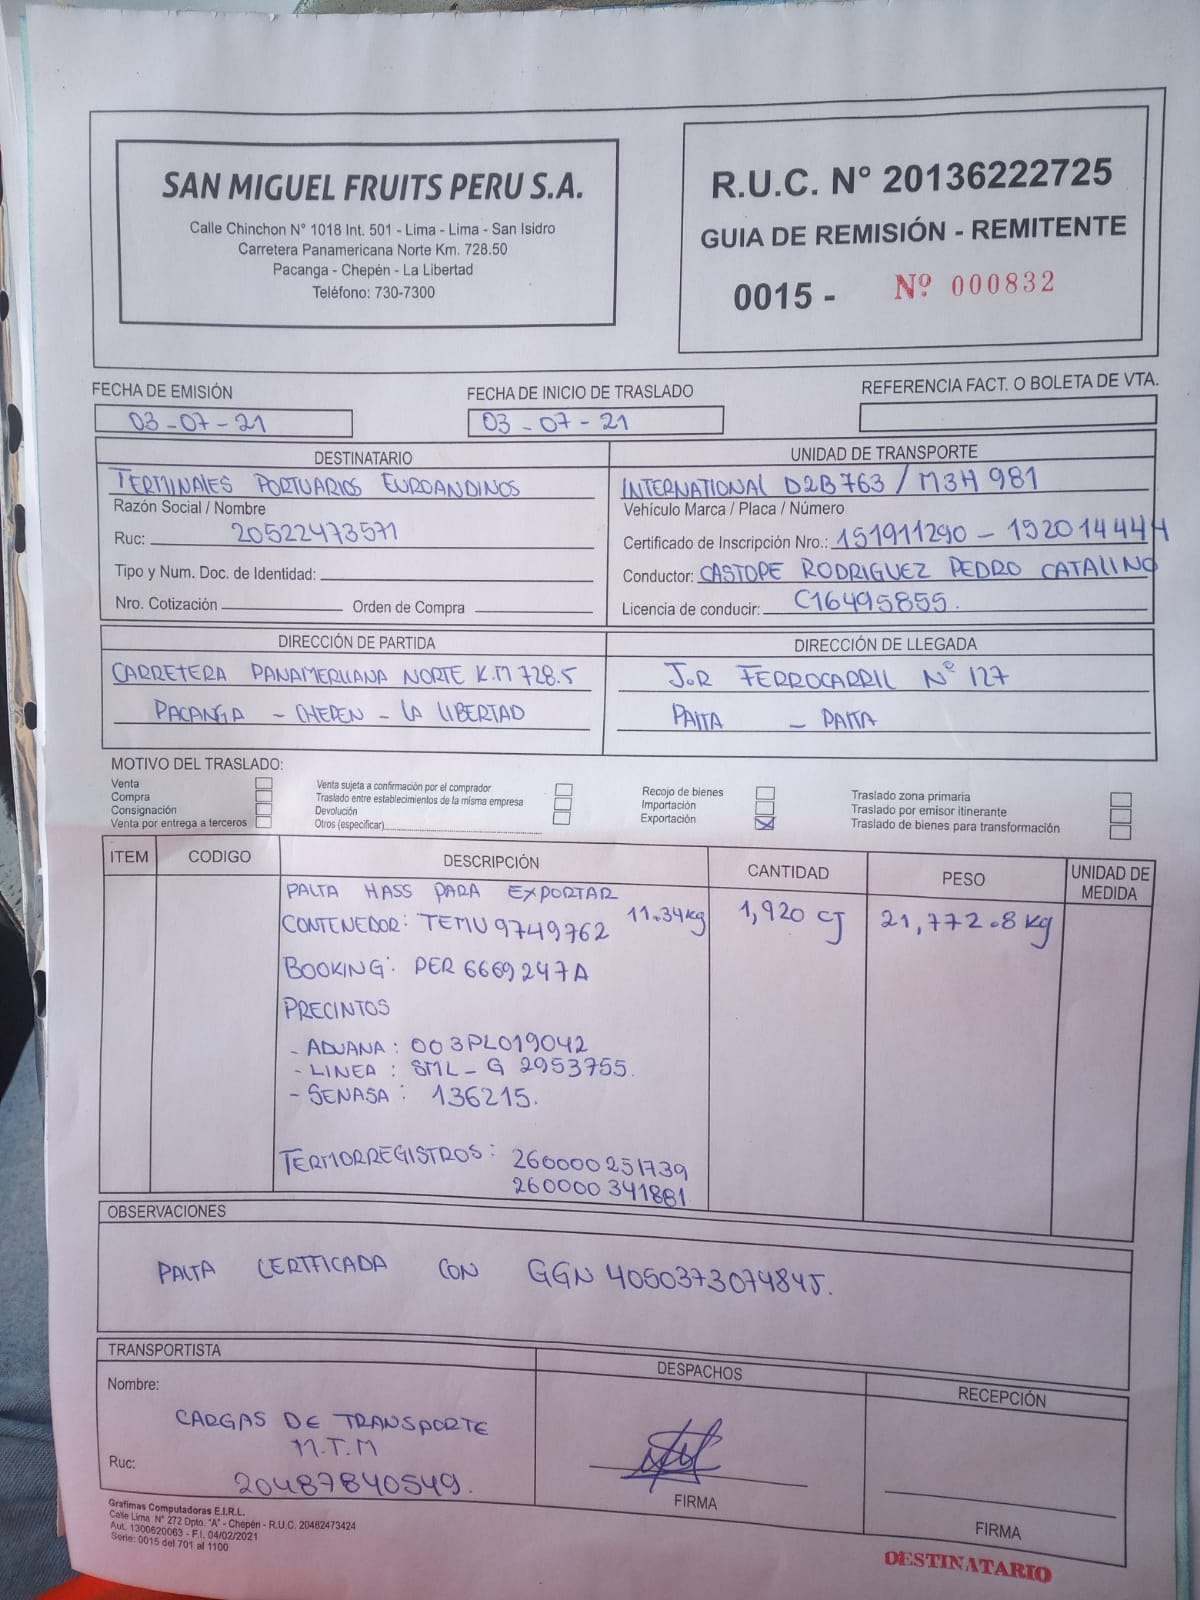 SAN MIGUEL FRUITS PERU S.A.
Calle Chinchon N° 1018 Int. 501 - Lima - Lima - San Isidro
Carretera Panamericana Norte Km. 728.50
Pacanga - Chepén - La Libertad
Teléfono: 730-7300
R.U.C. N° 20136222725
GUIA DE REMISIÓN - REMITENTE
0015 - Nº 000832
FECHA DE EMISIÓN
03-07-21
FECHA DE INICIO DE TRASLADO
03-07-21
REFERENCIA FACT. O BOLETA DE VTA.
DESTINATARIO
TERMINALES PORTUARIOS EUROANDINOS
Razón Social / Nombre
Ruc: 20522473571
Tipo y Num. Doc. de Identidad:
Nro. Cotización Orden de Compra
UNIDAD DE TRANSPORTE
INTERNATIONAL D2B763 / M3H 981
Vehículo Marca / Placa / Número
Certificado de Inscripción Nro.: 151911290 - 152014444
Conductor: CASTOPE RODRIGUEZ PEDRO CATALINO
Licencia de conducir: C16495855.
DIRECCIÓN DE PARTIDA
CARRETERA PANAMERICANA NORTE K.M 728.5
PACANGA - CHEPEN - LA LIBERTAD
DIRECCIÓN DE LLEGADA
J.R FERROCARRIL N° 127
PAITA - PAITA
MOTIVO DEL TRASLADO:
Venta
Compra
Consignación
Venta por entrega a terceros
Venta sujeta a confirmación por el comprador
Traslado entre establecimientos de la misma empresa
Devolución
Otros (especificar)
Recojo de bienes
Importación
Exportación
Traslado zona primaria
Traslado por emisor itinerante
Traslado de bienes para transformación
ITEM CODIGO DESCRIPCIÓN CANTIDAD PESO UNIDAD DE MEDIDA
PALTA HASS PARA EXPORTAR
CONTENEDOR: TEMU 9749762 11.34kg 1,920 CJ 21,772.8 kg
BOOKING: PER 6669247A
PRECINTOS
- ADUANA : 003PL019042
- LINEA : SML-G 2953755.
- SENASA : 136215.
TERMORREGISTROS: 260000251739
260000341881
OBSERVACIONES
PALTA CERTFICADA CON GGN 4050373074845.
TRANSPORTISTA
Nombre:
CARGAS DE TRANSPORTE
M.T.M
Ruc: 20487840549.
DESPACHOS
FIRMA
RECEPCIÓN
FIRMA
Grafimas Computadoras E.I.R.L.
Calle Lima N° 272 Dpto. "A" - Chepén - R.U.C. 20482473424
Aut. 1300620063 - F.I. 04/02/2021
Serie: 0015 del 701 al 1100
DESTINATARIO